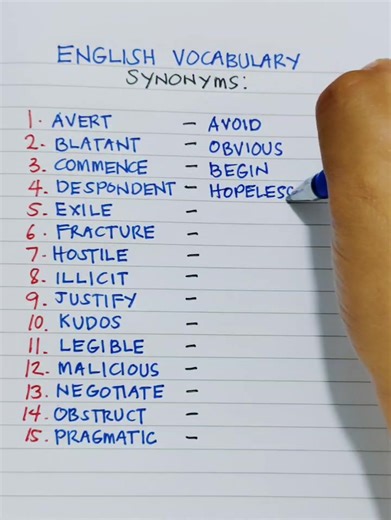 ENGLISH VOCABULARY
SYNONYMS:
1. AVERT - AVOID
2. BLATANT - OBVIOUS
3. COMMENCE - BEGIN
4. DESPONDENT - HOPELESS
5. EXILE -
6. FRACTURE -
7. HOSTILE -
8. ILLICIT -
9. JUSTIFY -
10. KUDOS -
11. LEGIBLE -
12. MALICIOUS -
13. NEGOTIATE -
14. OBSTRUCT -
15. PRAGMATIC -